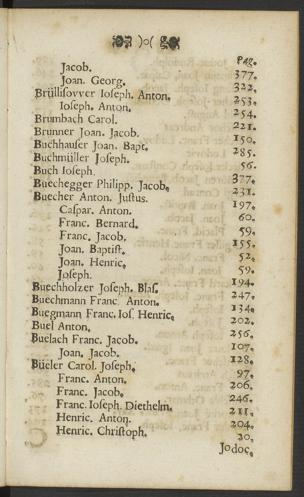 )o(
Pag.
Jacob. 377.
Joan. Georg. 322.
Brüllisovver Ioseph. Anton. 253.
Ioseph. Anton. 254.
Brumbach Carol. 221.
Brunner Joan. Jacob. 150.
Buchhauser Joan. Bapt. 285.
Buchmüller Joseph. 56.
Buch Ioseph. 377.
Buechegger Philipp. Jacob. 231.
Buecher Anton. Justus. 197.
Caspar. Anton. 60.
Franc. Bernard. 59.
Franc. Jacob. 155.
Joan. Baptist. 52.
Joan. Henric. 59.
Joseph. 194.
Buechholzer Joseph. Blas. 247.
Buechmann Franc. Anton. 134.
Buegmann Franc. Ios. Henric. 202.
Buel Anton. 256.
Buelach Franc. Jacob. 107.
Joan. Jacob. 128.
Büeler Carol. Joseph. 97.
Franc. Anton. 206.
Franc. Jacob. 246.
Franc. Ioseph. Diethelm. 211.
Henric. Anton. 204.
Henric. Christoph. 20.
Jodoc.